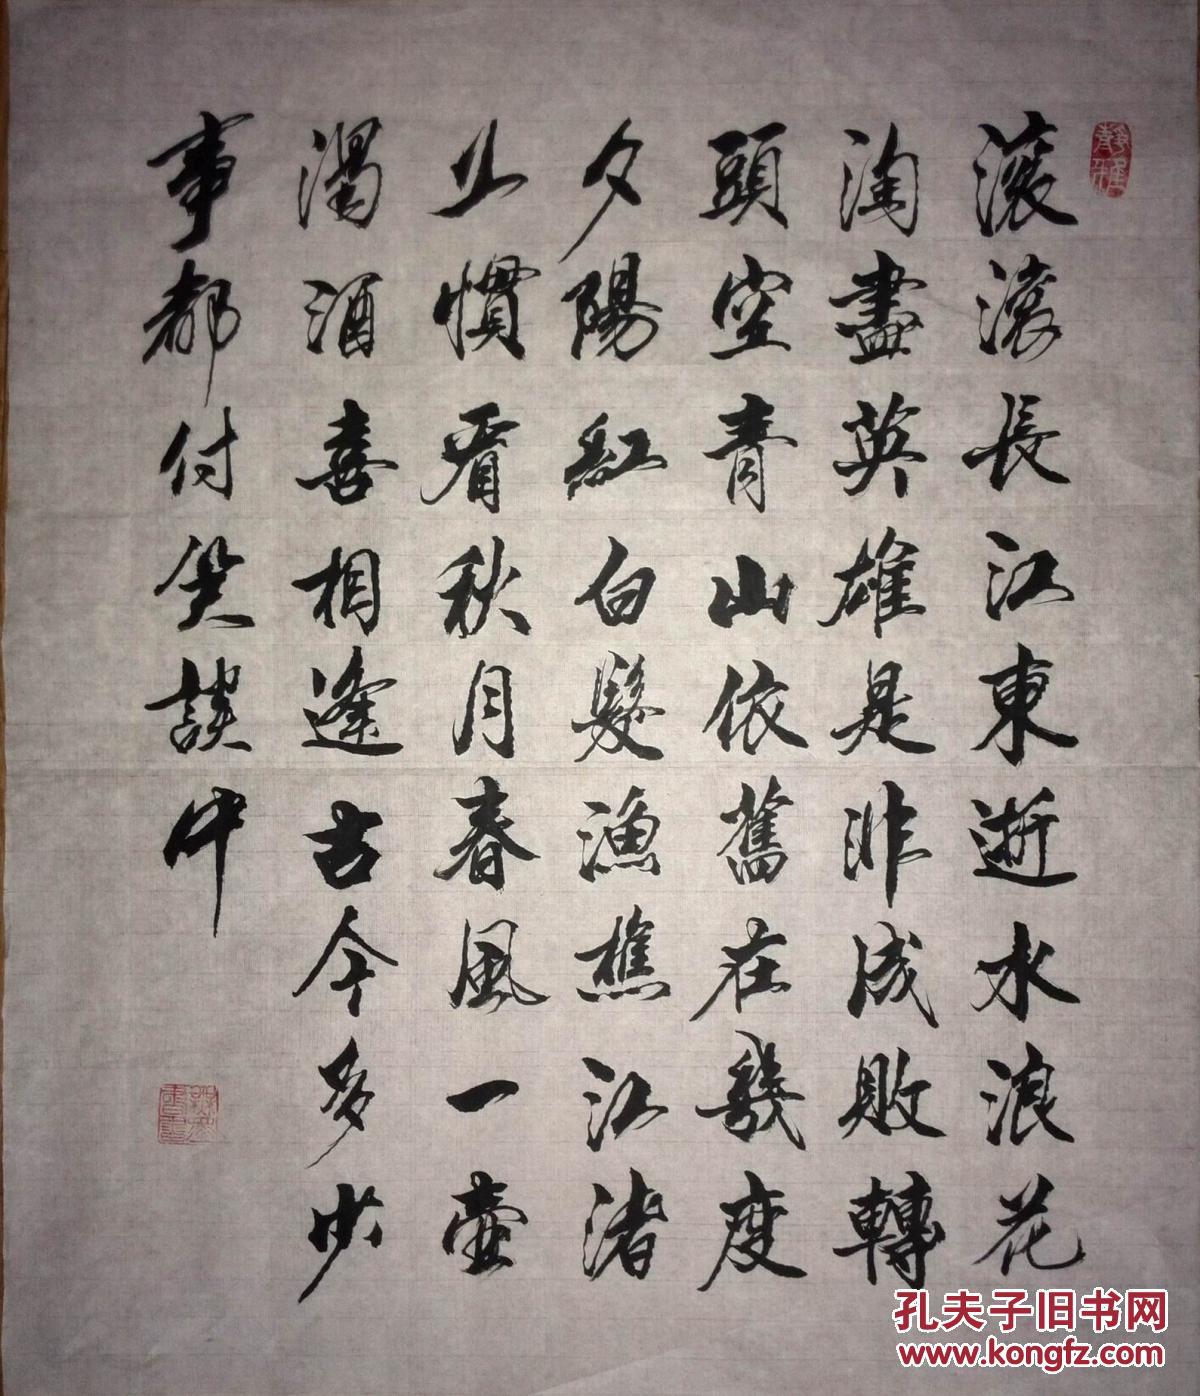 滾滾長江東逝水浪花
淘盡英雄是非成敗轉
頭空青山依舊在幾度
夕陽紅白髮漁樵江渚
上慣看秋月春風一壺
濁酒喜相逢古今多少
事都付笑談中
孔夫子旧书网
www.kongfz.com